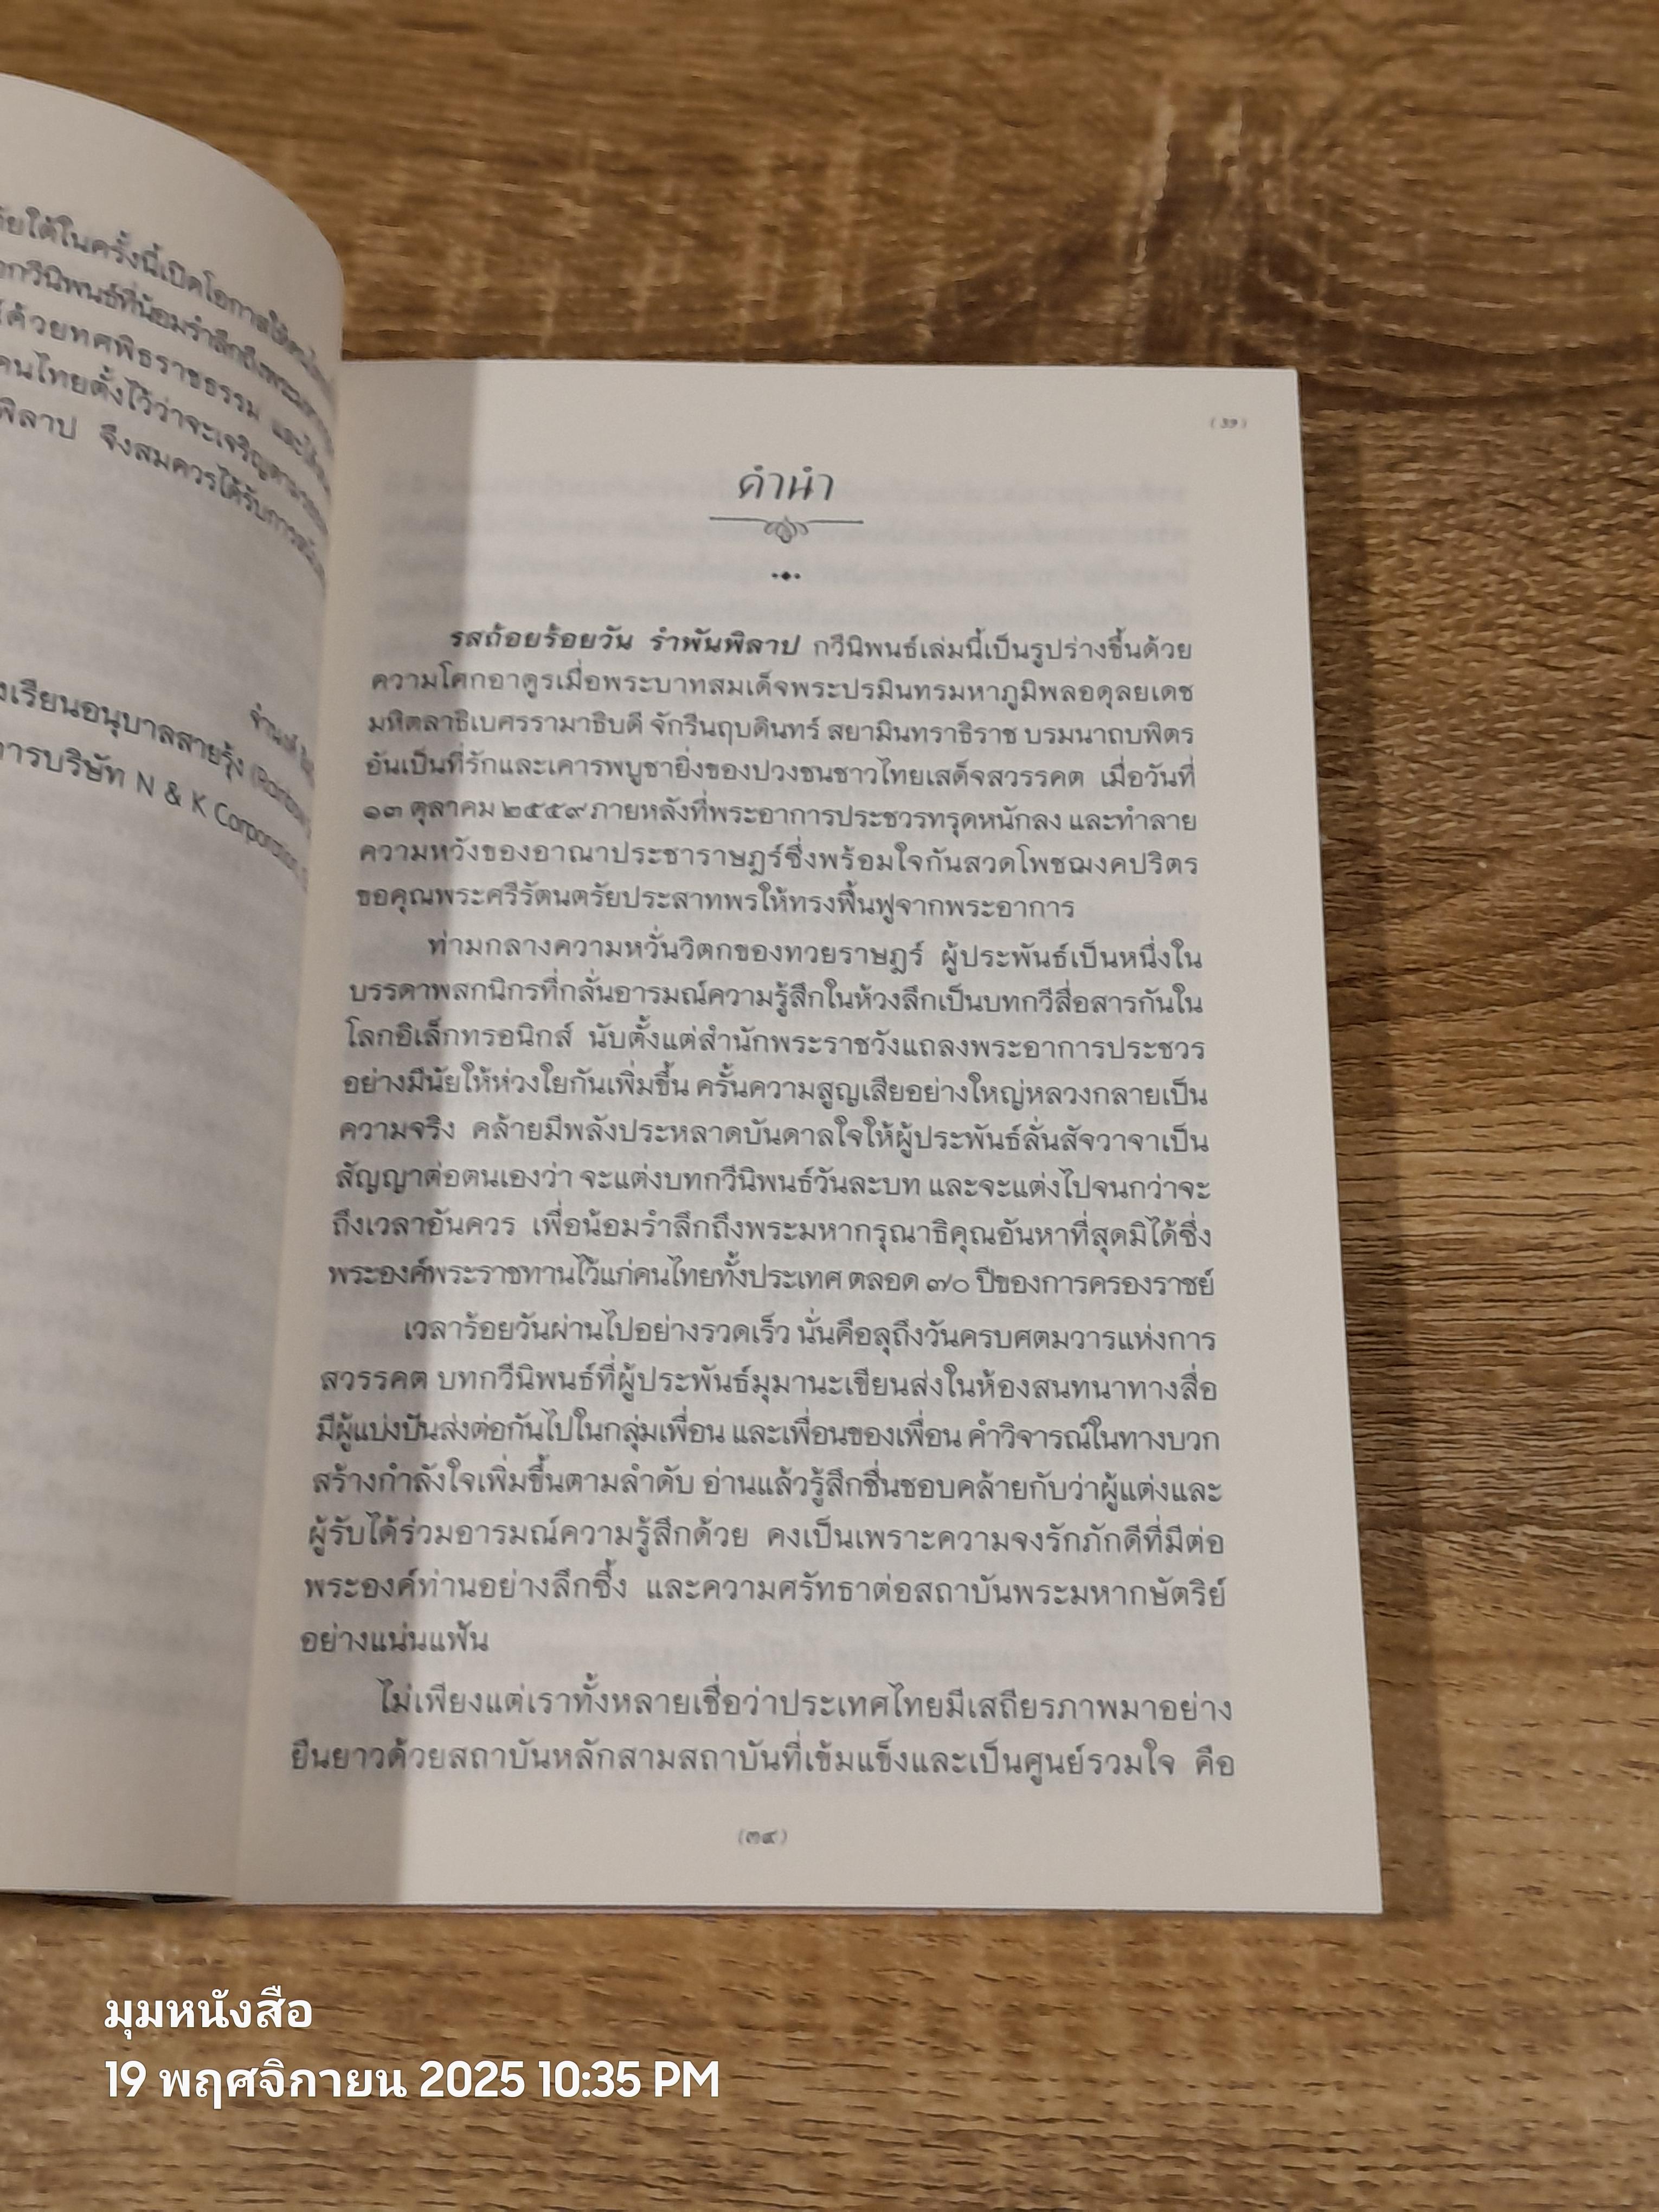 ัยใต้ในครั้งนี้เปิดโอกาสให้คน
กวีนิพนธ์ที่น้อมรำลึกถึงพระมหา
ด้วยทศพิธราชธรรม และได้
คนไทยตั้งไว้ว่าจะเจริญตาม
พิลาป จึงสมควรได้รับการ
จำนงค์
งเรียนอนุบาลสายรุ้ง (Rainbow
การบริษัท N & K Corporation
(39)
คำนำ
รสถ้อยร้อยวัน รำพันพิลาป กวีนิพนธ์เล่มนี้เป็นรูปร่างขึ้นด้วย
ความโศกอาดูรเมื่อพระบาทสมเด็จพระปรมินทรมหาภูมิพลอดุลยเดช
มหิตลาธิเบศรรามาธิบดี จักรีนฤบดินทร์ สยามินทราธิราช บรมนาถบพิตร
อันเป็นที่รักและเคารพบูชายิ่งของปวงชนชาวไทยเสด็จสวรรคต เมื่อวันที่
๑๓ ตุลาคม ๒๕๕๙ ภายหลังที่พระอาการประชวรทรุดหนักลง และทำลาย
ความหวังของอาณาประชาราษฎร์ซึ่งพร้อมใจกันสวดโพชฌงคปริตร
ขอคุณพระศรีรัตนตรัยประสาทพรให้ทรงฟื้นฟูจากพระอาการ
ท่ามกลางความหวั่นวิตกของทวยราษฎร์ ผู้ประพันธ์เป็นหนึ่งใน
บรรดาพสกนิกรที่กลั่นอารมณ์ความรู้สึกในห้วงลึกเป็นบทกวีสื่อสารกันใน
โลกอิเล็กทรอนิกส์ นับตั้งแต่สำนักพระราชวังแถลงพระอาการประชวร
อย่างมีนัยให้ห่วงใยกันเพิ่มขึ้น ครั้นความสูญเสียอย่างใหญ่หลวงกลายเป็น
ความจริง คล้ายมีพลังประหลาดบันดาลใจให้ผู้ประพันธ์ลั่นสัจวาจาเป็น
สัญญาต่อตนเองว่า จะแต่งบทกวีนิพนธ์วันละบท และจะแต่งไปจนกว่าจะ
ถึงเวลาอันควร เพื่อน้อมรำลึกถึงพระมหากรุณาธิคุณอันหาที่สุดมิได้ซึ่ง
พระองค์พระราชทานไว้แก่คนไทยทั้งประเทศ ตลอด ๗๐ ปีของการครองราชย์
เวลาร้อยวันผ่านไปอย่างรวดเร็ว นั่นคือลุถึงวันครบศตมวารแห่งการ
สวรรคต บทกวีนิพนธ์ที่ผู้ประพันธ์มุมานะเขียนส่งในห้องสนทนาทางสื่อ
มีผู้แบ่งปันส่งต่อกันไปในกลุ่มเพื่อน และเพื่อนของเพื่อน คำวิจารณ์ในทางบวก
สร้างกำลังใจเพิ่มขึ้นตามลำดับ อ่านแล้วรู้สึกชื่นชอบคล้ายกับว่าผู้แต่งและ
ผู้รับได้ร่วมอารมณ์ความรู้สึกด้วย คงเป็นเพราะความจงรักภักดีที่มีต่อ
พระองค์ท่านอย่างลึกซึ้ง และความศรัทธาต่อสถาบันพระมหากษัตริย์
อย่างแน่นแฟ้น
ไม่เพียงแต่เราทั้งหลายเชื่อว่าประเทศไทยมีเสถียรภาพมาอย่าง
ยืนยาวด้วยสถาบันหลักสามสถาบันที่เข้มแข็งและเป็นศูนย์รวมใจ คือ
(๓๙)
มุมหนังสือ
19 พฤศจิกายน 2025 10:35 PM